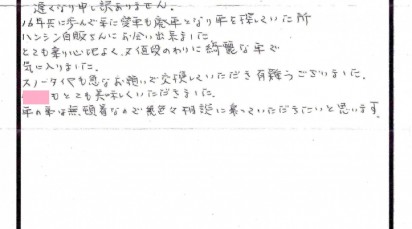 遅くなり申し訳ありません。
16年共に歩んで来た愛車も廃車となり車を探していた所
ハンシン自販さんにお会い出来ました
とても乗り心地よく、又値段のわりに綺麗な車で
気に入りました。
スノータイヤも急なお願いで交換していただき有難うございました。
もとても美味しくいただきました。
車の事は無頓着なので色々相談に乗っていただきたいと思います。